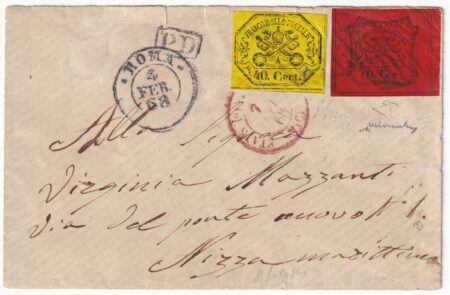 PD
ROMA
4
FEB
68
FRANCO BOLLO POSTALE
40 Cent.
10 Cent.
Alla Signora
Virginia Mazzanti
Via del ponte nuovo N° 1.
Nizza marittima